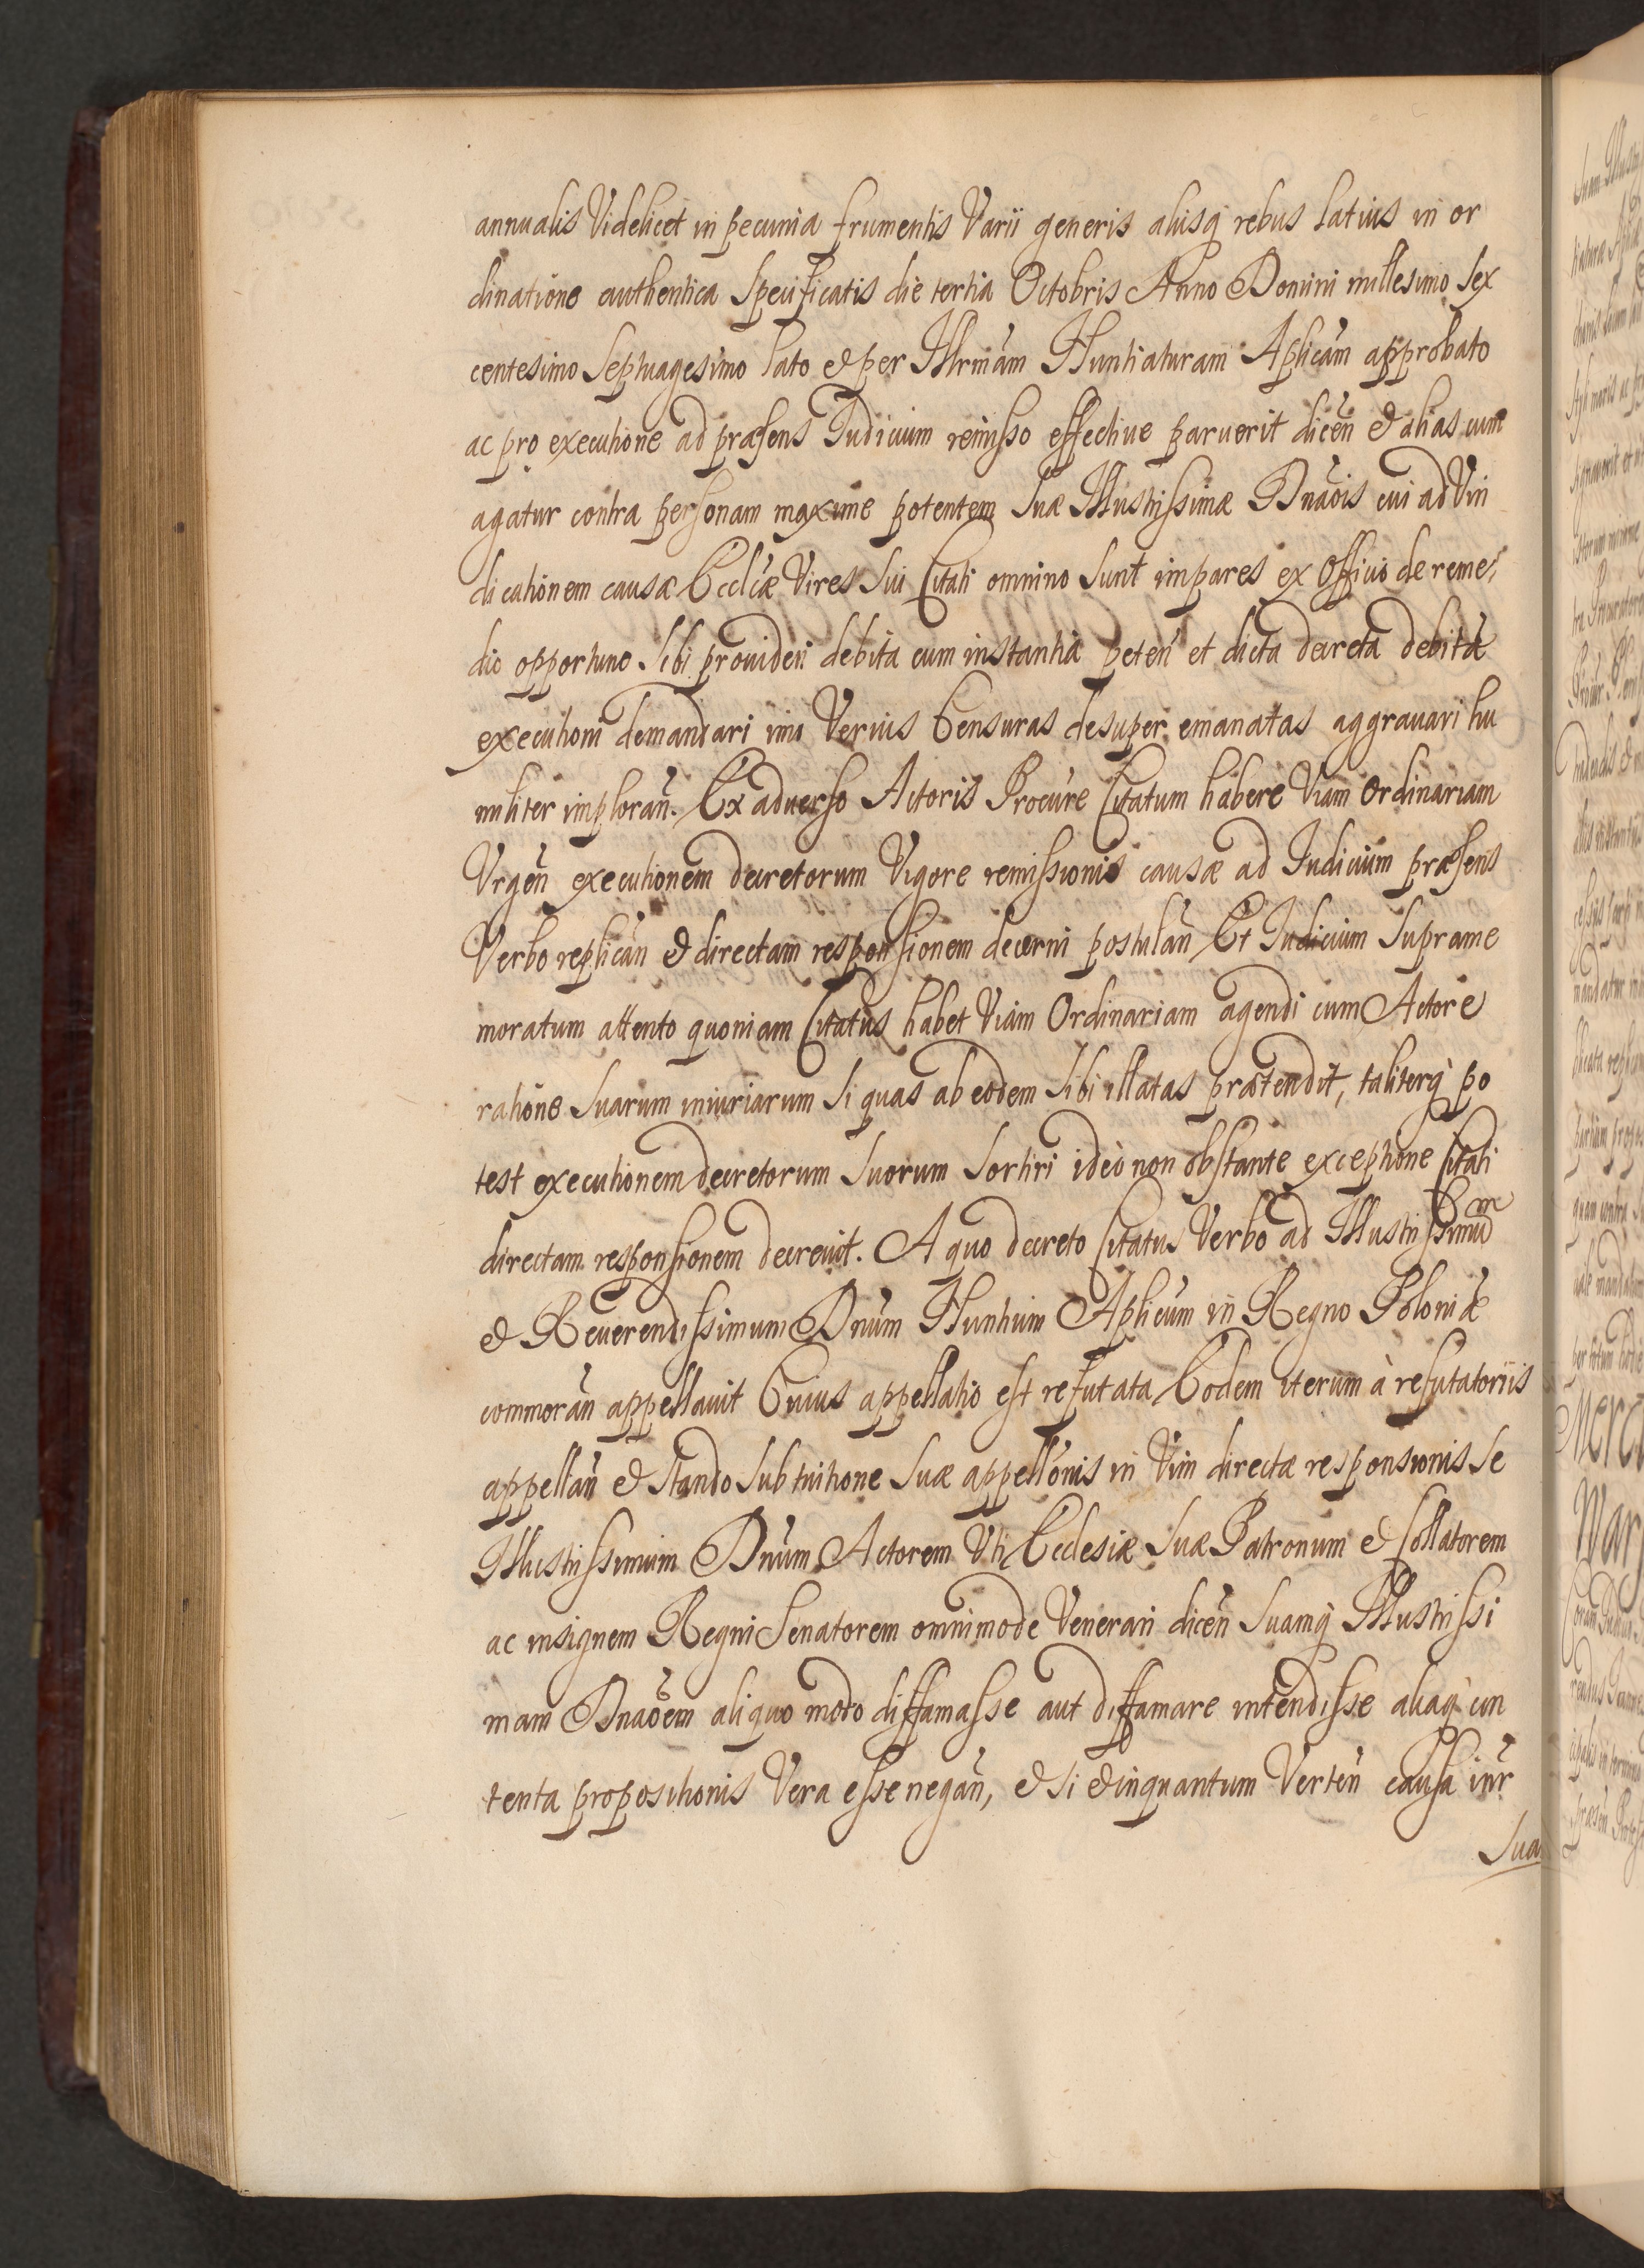 annualis Videlicet in pecunia frumentis Varii generis aliisq́ rebus latius in or
dinatione authentica Specificatis die tertia Octobris Anno Domini millesimo Sex
centesimo Septuagesimo lato & per Illrmam Nuntiaturam Aplicam approbato
ac pro executione ad præsens Iudicium remisso effective paruerit dicen̄ & alias cum
agatur contra personam maxime potentem Suæ Illustrissimæ Dnaois cui ad Vin
dicationem causæ Ecclæ Vires Sui Citati omnino Sunt impares ex Officio de reme,
dio opportuno Sibi provideri debita cum instantia peten̄ et dicta decreta debitæ
executioni demandari imo Verius Censuras desuper emanatas aggrauari hu
militer imploran̄. Ex aduerso Actoris Procure Citatum habere Viam Ordinariam
Vrgen̄ executionem decretorum Vigore remissionis causæ ad Iudicium præsens
Verbo replican̄ & directam responsionem decerni postulan̄ Et Iudicium Suprame
moratum attento quoniam Citatus habet Viam Ordinariam agendi cum Actore
ratione Suarum iniuriarum Si quas ab eodem Sibi illatas prætendit, taliterq́ po
test executionem decretorum Suorum Sortiri ideò non obstante exceptione Citati
directam responsionem decreuit. A quo decreto Citatus Verbo ad Illustrissimū
& Reuerendissimum Dnum Nuntium Aplicum in Regno Poloniæ
commoran̄ appellauit Cuius appellatio est refutata Eodem iterum à refutatoriis
appellan̄ & Stando Sub tuitione Suæ appellonis in Vim directæ responsionis Se
Illustrissimum Dnum Actorem Vti Ecclesiæ Suæ Patronum & Collatorem
ac insignem Regni Senatorem omnimode Venerari dicen̄ Suamq́ Illustrissi
mam Dnaoem aliquo modo diffamasse aut diffamare intendisse aliaq́ con
tenta propositionis Vera esse negan̄, & Si & inquantum Verten̄ causa inr̄
Sua